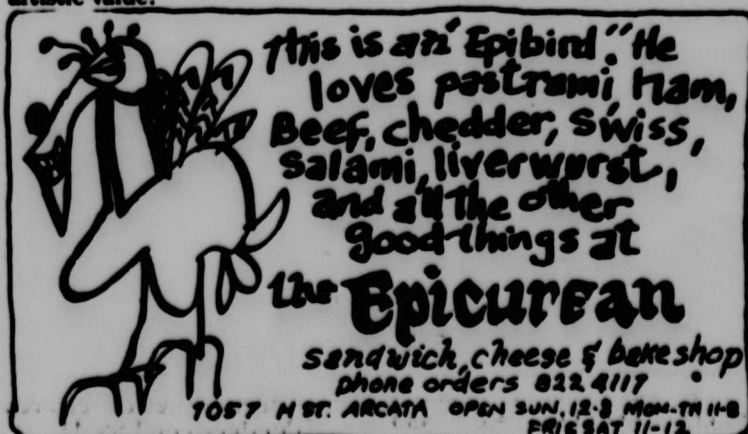 artistic value.
This is an "Epibird." He
loves pastrami, Ham,
Beef, chedder, Swiss,
Salami, liverwurst,
and all the other
good things at
the Epicurean
sandwich, cheese & bake shop
phone orders 822 4117
1057 H ST. ARCATA OPEN SUN. 12-8 MON-TH 11-8
FRI & SAT 11-12